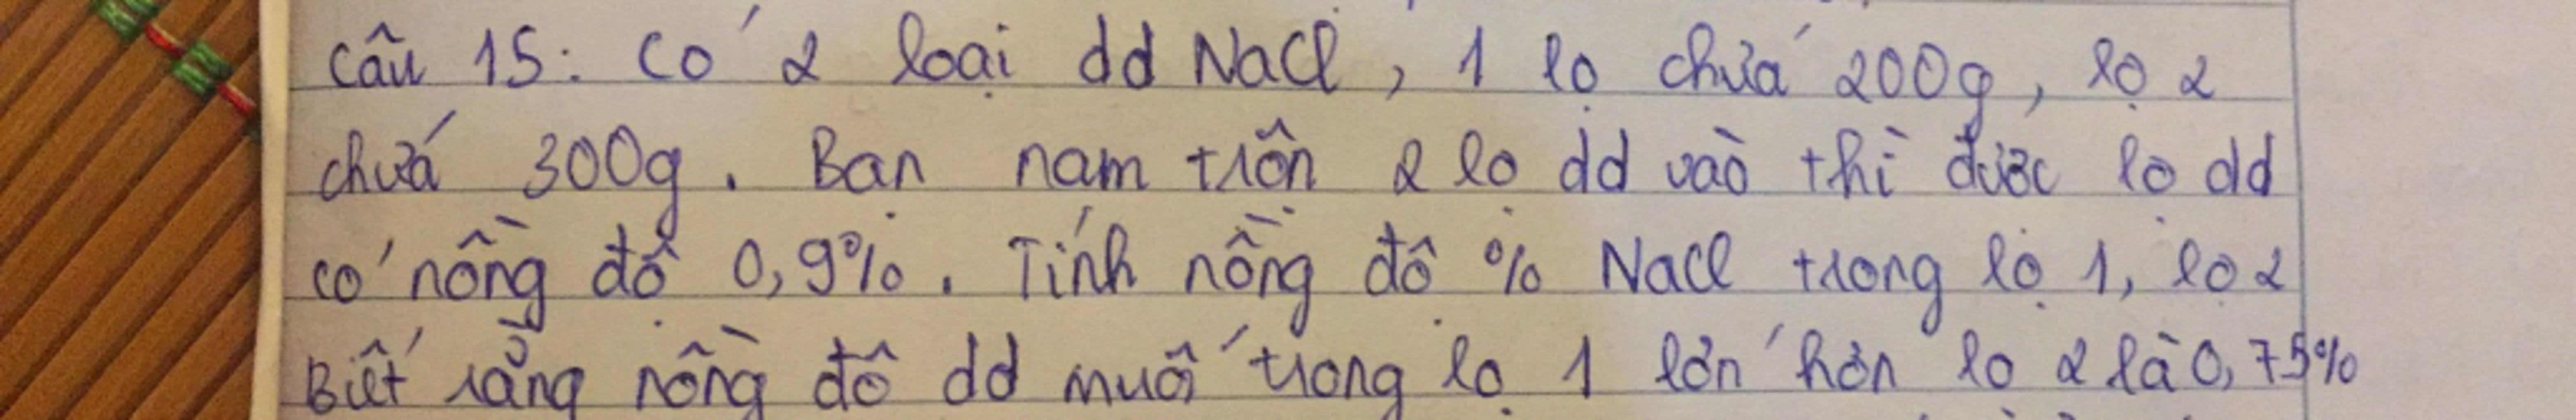 Câu 15: Có 2 loại dd NaCl, 1 lọ chứa 200g, lọ 2
chứa 300g. Bạn nam trộn 2 lọ dd vào thì được lọ dd
có nồng độ 0,9%. Tính nồng độ % NaCl trong lọ 1, lọ 2
Biết rằng nồng độ dd muối trong lọ 1 lớn hơn lọ 2 là 0,75%